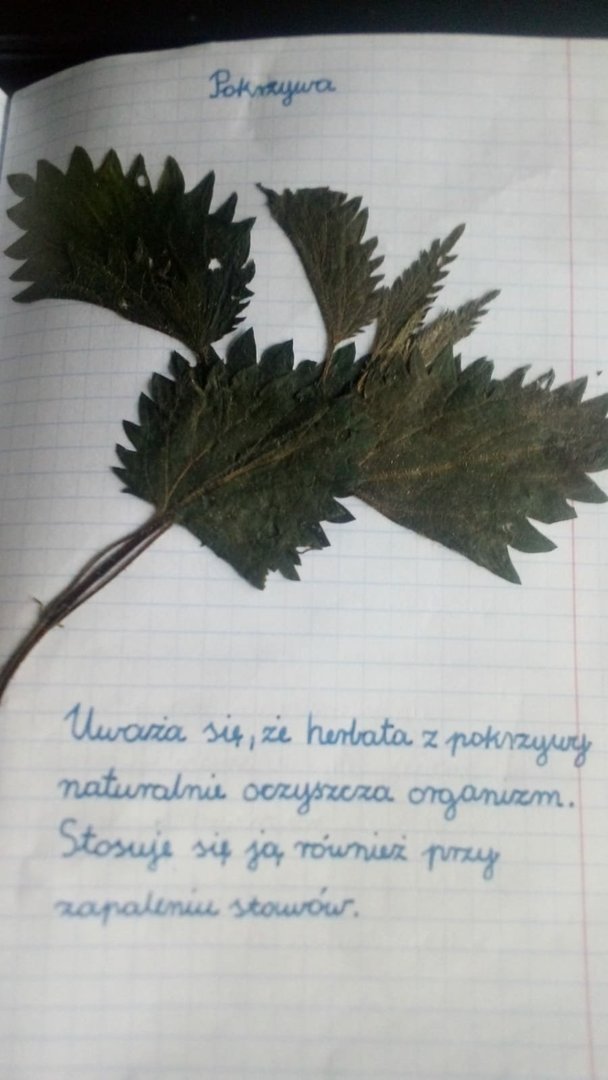 Pokrzywa
Uważa się, że herbata z pokrzywy
naturalnie oczyszcza organizm.
Stosuje się ją również przy
zapaleniu stawów.